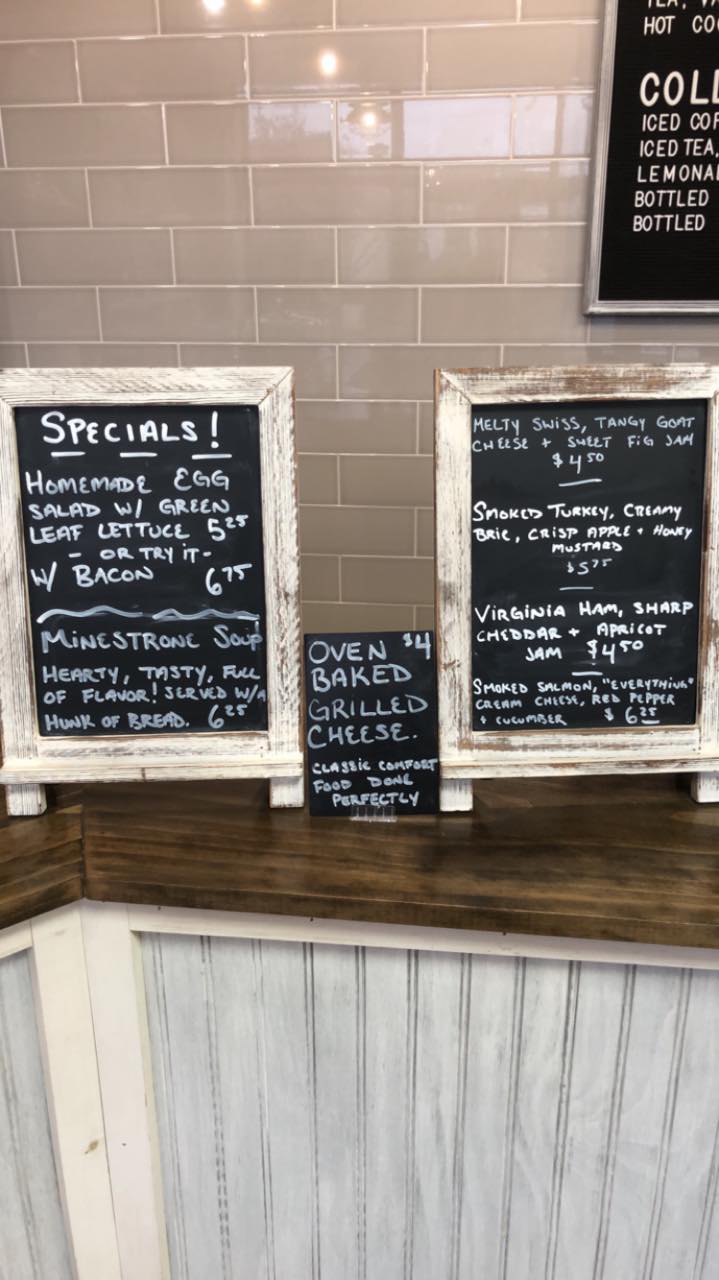 HOT
COLD
ICED
ICED TEA,
BOTTLED
BOTTLED
SPECIALS!
HOMEMADE EGG
SALAD W/ GREEN
LEAF LETTUCE 5.25
- OR TRY IT -
W/ BACON 6.75
MINESTRONE SOUP
HEARTY, TASTY, FULL
OF FLAVOR! SERVED W/A
HUNK OF BREAD. 6.25
OVEN $4
BAKED
GRILLED
CHEESE.
CLASSIC COMFORT
FOOD DONE
PERFECTLY
MELTY SWISS, TANGY GOAT
CHEESE + SWEET FIG JAM
$4.50
SMOKED TURKEY, CREAMY
BRIE, CRISP APPLE + HONEY
MUSTARD
$5.75
VIRGINIA HAM, SHARP
CHEDDAR + APRICOT
JAM $4.50
SMOKED SALMON, "EVERYTHING"
CREAM CHEESE, RED PEPPER
+ CUCUMBER $6.25